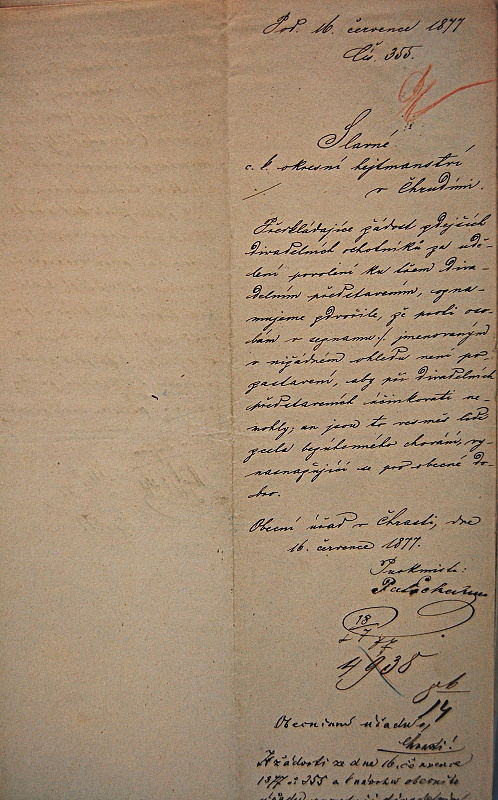 Pod. 16. července 1877
Čís. 355.
Slavné
c. k. okresní hejtmanství
v Chrudimi.
Předkládajíce žádost zdejších
divadelních ochotníků za udě-
lení povolení ku třem diva-
delním představením, ozna-
mujeme zdvořile, že proti oso-
bám v seznamu ·/. jmenovaným
v nijakém ohledu není po-
zastavení, aby při divadelních
představeních účinkovati ne-
mohly; an jsou to vesměs lidé
zcela bezúhonného chování, vy-
nasnažující se pro obecné do-
bro.
Obecní úřad v Chrasti, dne
16. července 1877.
Purkmistr:
18
7 77
4938
14
Obecnímu úřadu v
Chrasti!
K žádosti ze dne 16. července
1877 č 355 a k návrhu obecního
úřadu